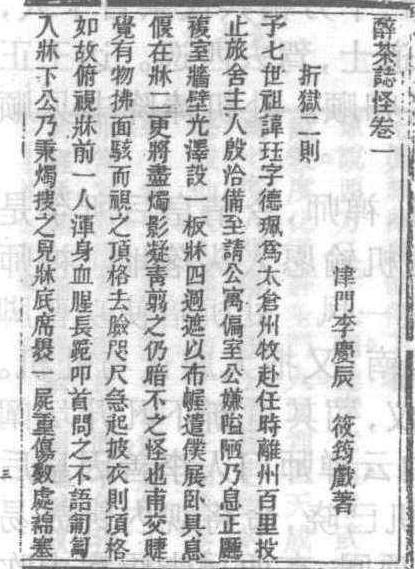 醉茶誌怪卷一
津門李慶辰 筱筠戲著
折獄二則
予七世祖諱珏字德珮爲太倉州牧赴任時離州百里投
止旅舍主人殷洽備至請公寓偏室公嫌隘陋乃息正廳
複室牆壁光澤設一板牀四週遮以布幄遣僕展臥具息
偃在牀二更將盡燭影凝靑翦之仍暗不之怪也甫交睫
覺有物拂面駭而視之頂格去臉咫尺急起披衣則頂格
如故俯視牀前一人渾身血腥長跪叩首問之不語匍匐
入牀下公乃秉燭搜之見牀底席裹一屍重傷數處綿塞
三